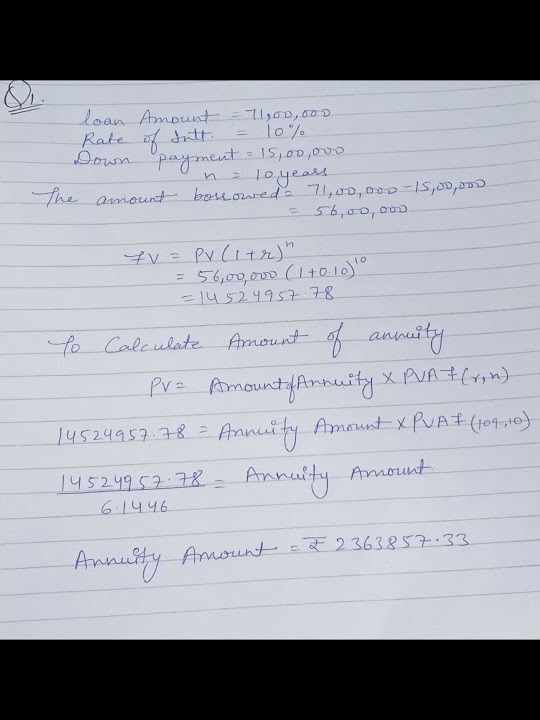 Q1.
Loan Amount = 71,00,000
Rate of Intt. = 10%
Down payment = 15,00,000
n = 10 years
The amount borrowed = 71,00,000 - 15,00,000
= 56,00,000
FV = PV (1+r)^n
= 56,00,000 (1+0.10)^10
= 14524957.78
To Calculate Amount of annuity
PV = Amount of Annuity X PVAF (r,n)
14524957.78 = Annuity Amount X PVAF (10%,10)
14524957.78 / 6.1446 = Annuity Amount
Annuity Amount = ₹ 2363857.33